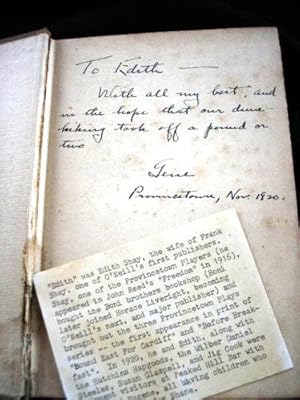 To Edith —
With all my best, and
in the hope that our dune-
hiking took off a pound or
two
Gene
Provincetown, Nov. 1920.
"Edith" was Edith Shay, the wife of Frank
Shay, one of O'Neill's first publishers.
Shay, one of the Provincetown Players (he
appeared in John Reed's "Freedom" in 1916),
bought the Boni brothers bookshop (Boni
later joined Horace Liveright, becoming
O'Neill's next, and major publisher) and
brought out the three Provincetown Plays
series -- the first appearance in print of
"Bound East For Cardiff" and "Before Break-
fast". In 1920, he and Edith, along with
the Hutchins Hapgoods, the Wilber Daniel
Steeles, Susan Glaspell, and Jig Cook were
visitors at Peaked Hill Bar with
all having children who
Shane.